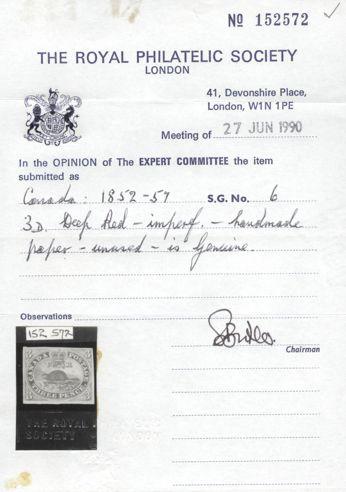 No 152572
THE ROYAL PHILATELIC SOCIETY
LONDON
41, Devonshire Place,
London, W1N 1PE
Meeting of 27 JUN 1990
In the OPINION of The EXPERT COMMITTEE the item
submitted as
Canada: 1852-57 S.G. No. 6
3D. Deep Red - imperf. - handmade
paper - unused - is Genuine.
Observations
Chairman
152 572
CANADA POSTAGE
THREE PENCE
THE ROYAL
SOCIETY